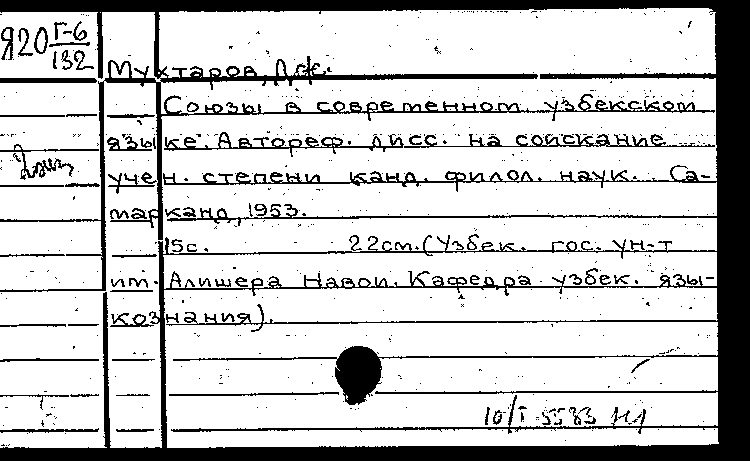 Я20 Г-6
132
Мухтаров, Дж.
Союзы в современном узбекском
языке. Автореф. дисс. на соискание
учен. степени канд. филол. наук. Са-
марканд, 1953.
15с. 22см. (Узбек. гос. ун-т
им. Алишера Навои. Кафедра узбек. язы-
кознания).
10/I-5583